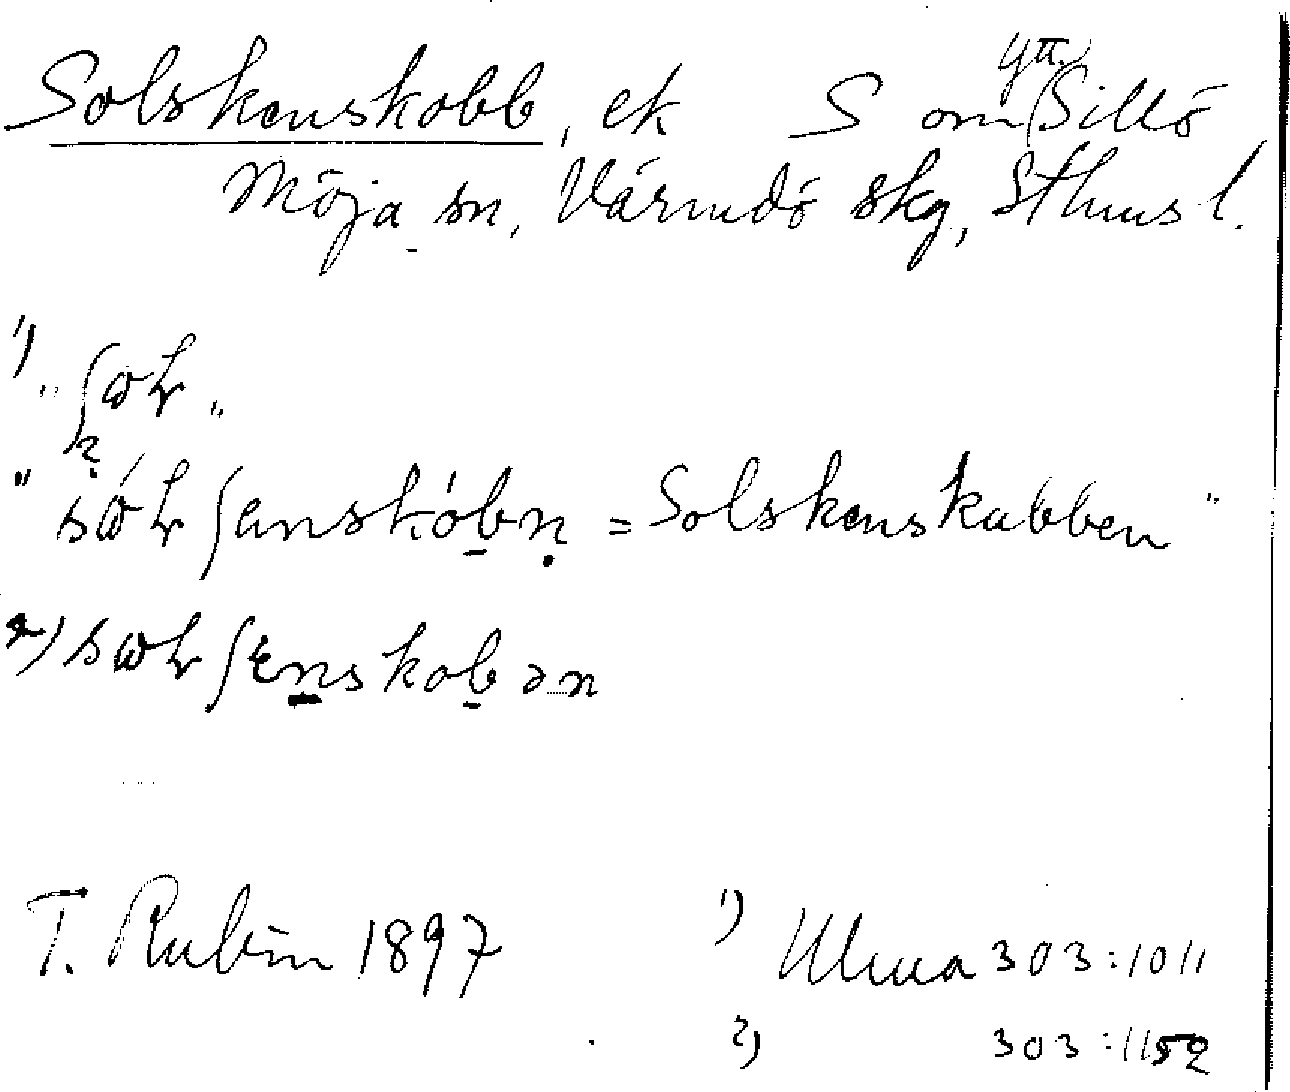 Solskenskobb, ek S om ytt. Sillö
Möja sn, Värmdö skg, Sthms l.
1)
"sωlʃenskóbn = Solskenskabben"
2) sωlʃɛnskobən
T. Rubin 1897 1) Ulma 303:1011
2) 303:1152